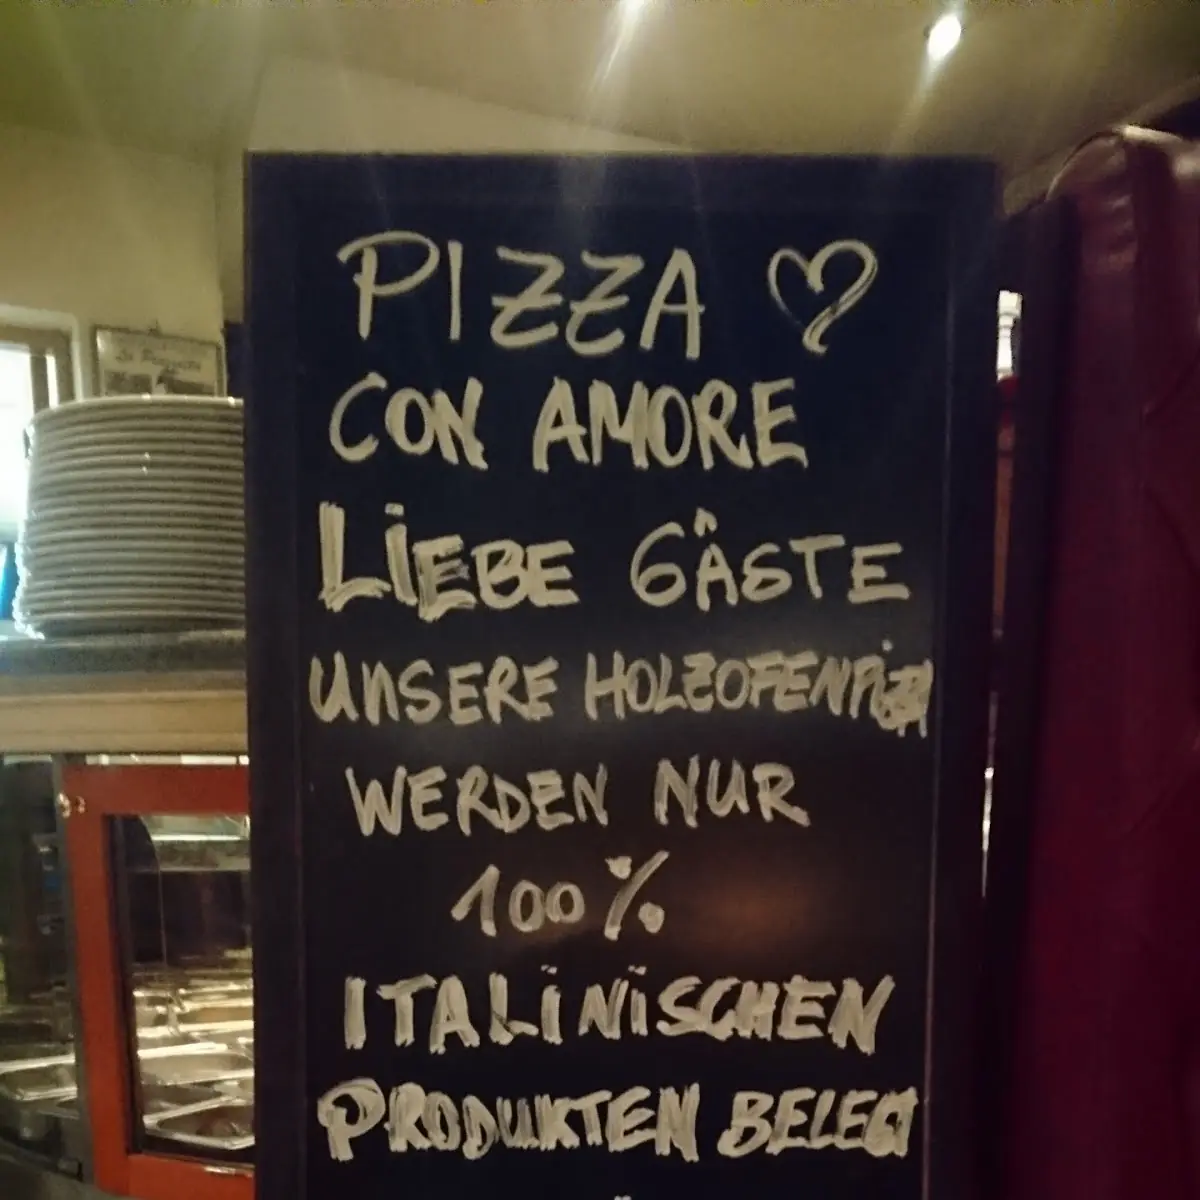 PIZZA ♡
CON AMORE
LiEBE GÄSTE
UNSERE HOLZOFENPiZZA
WERDEN NUR
100%
ITALiNiSCHEN
PRODUKTEN BELEGT